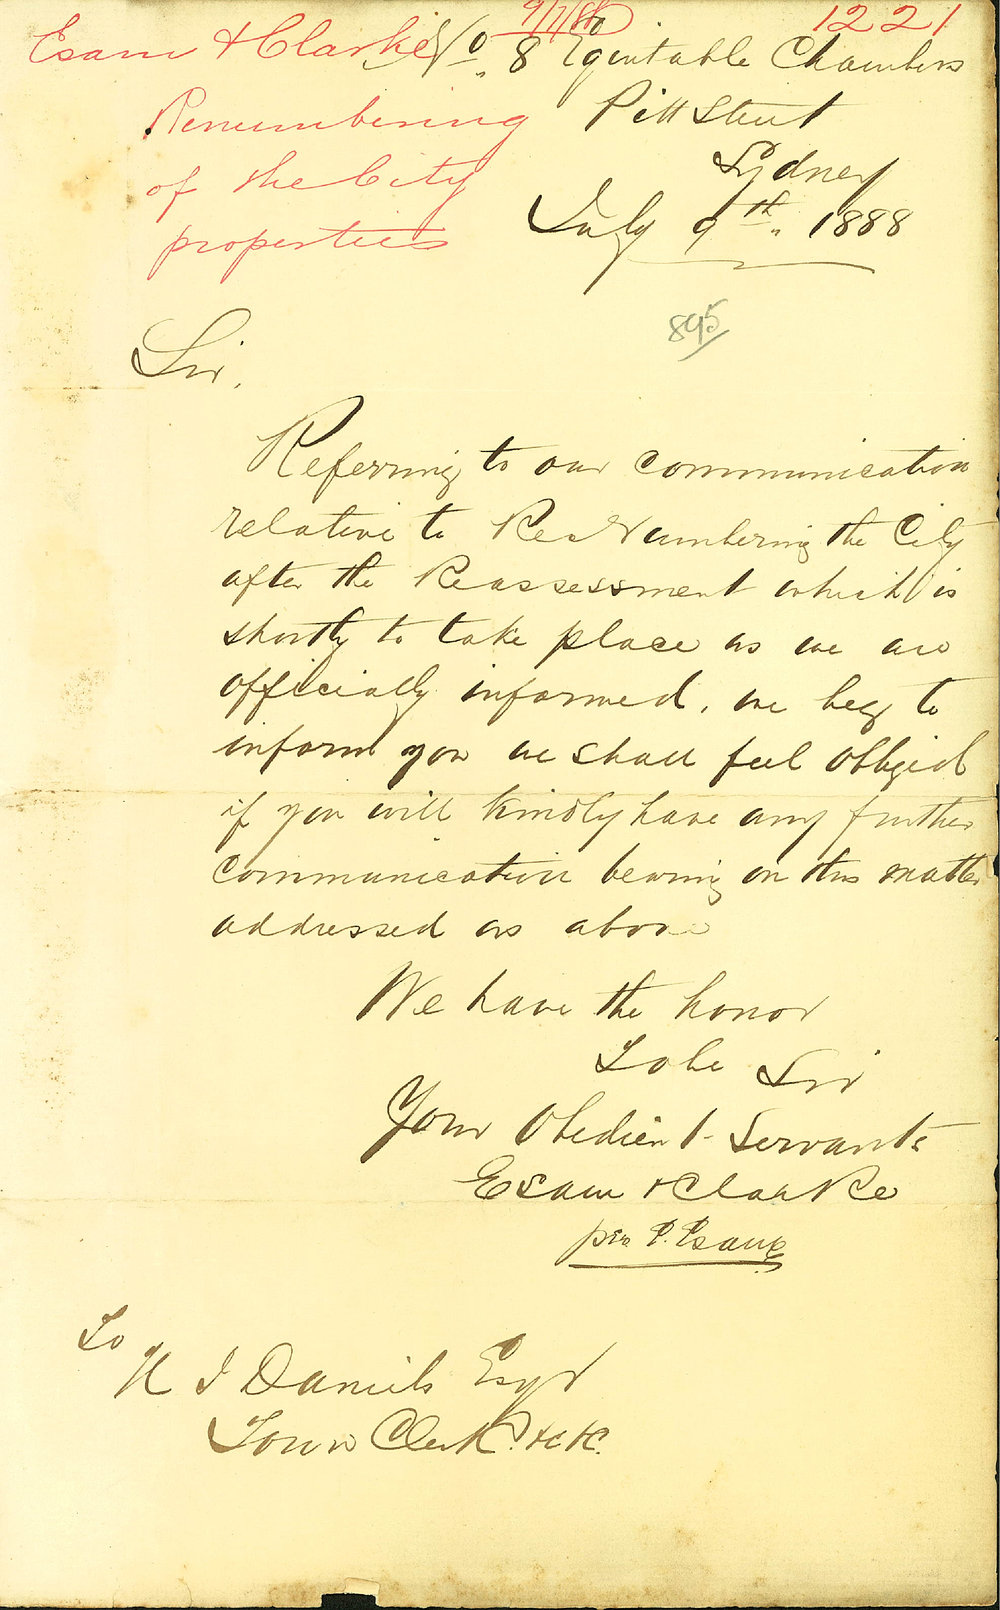 9/7/88
1221
Esam & Clarke
Renumbering
of the City
properties
No. 8 Equitable Chambers
Pitt Street
Sydney
July 9th. 1888
895
Sir,
Referring to our communication
relative to ReNumbering the City
after the Reassessment which is
shortly to take place as we are
officially informed, we beg to
inform you we shall feel obliged
if you will kindly have any further
communication bearing on this matter
addressed as above
We have the honor
To be Sir
Your Obedient Servants
Esam & Clarke
per P. Esam
To
H J Daniels Esqr
Town Clerk. &c &c.